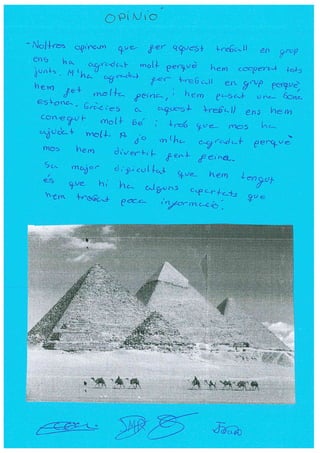 OPINIÓ
- Noltros opinam que fer aquest treball en grup
ens ha agradat molt perquè hem cooperat tots
junts. M'ha agradat fer treball en grup perquè
hem fet molta feina, i hem passat una bona
estona. Gràcies a aquest treball ens hem
conegut molt bé i trob que mos ha
ajudat molt. A jo m'ha agradat perquè
mos hem divertit fent feina.
Sa major dificultat que hem tengut
és que hi ha alguns apartats que
hem trobat poca informació.